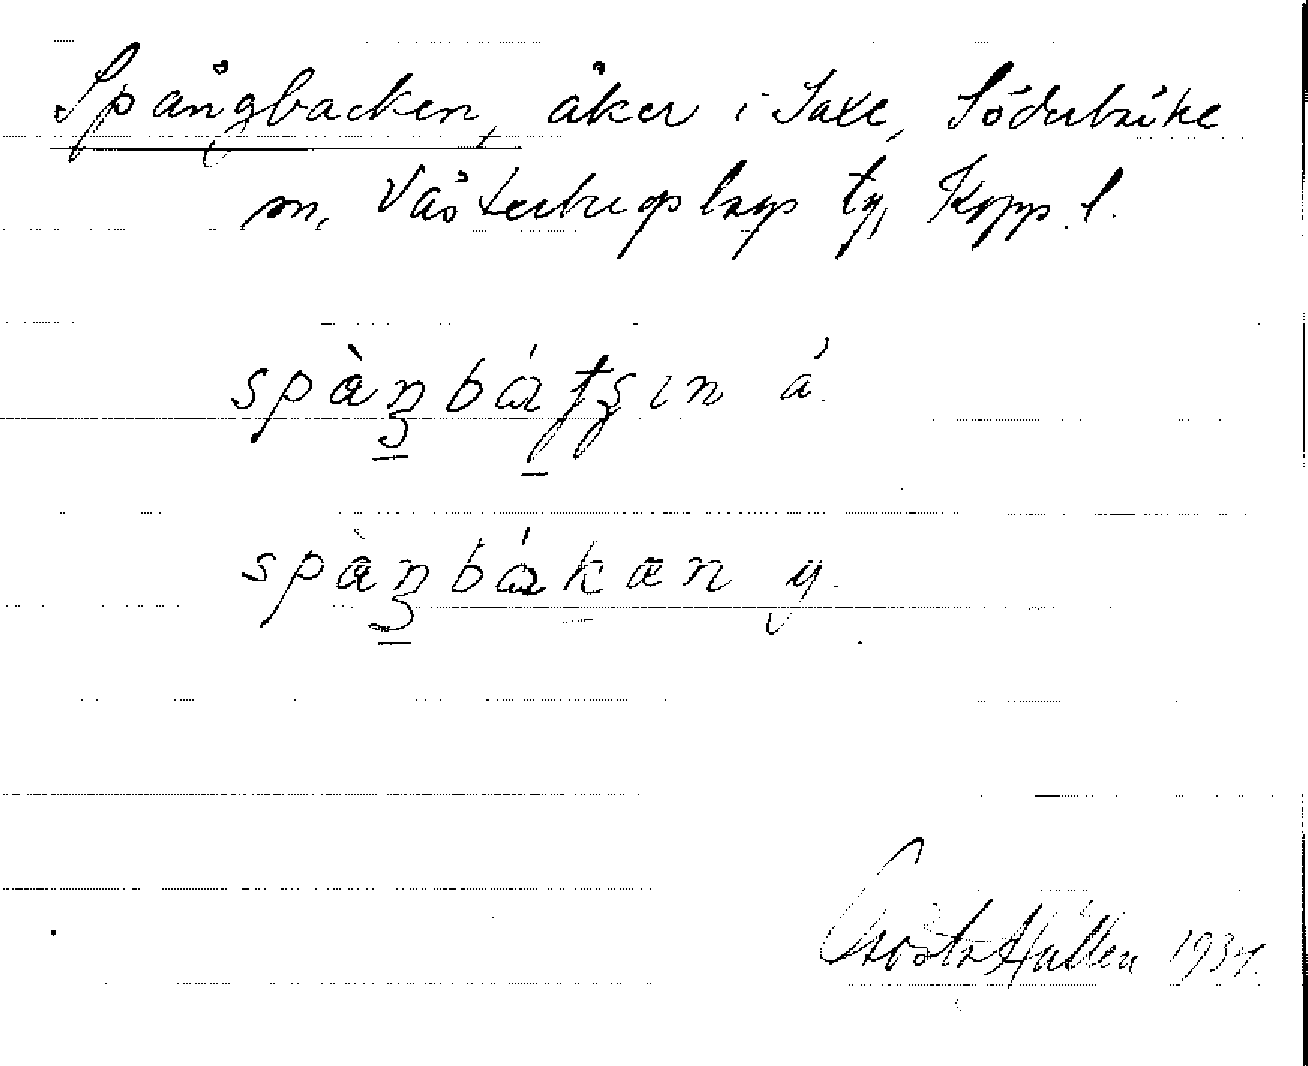 Spångbacken, åker i Saxe, Söderbärke
sn, Västerbergslags tg, Kopp. l.
spàŋbátʂın á.
spàŋbákæn y.
Gösta Hällen 1934.